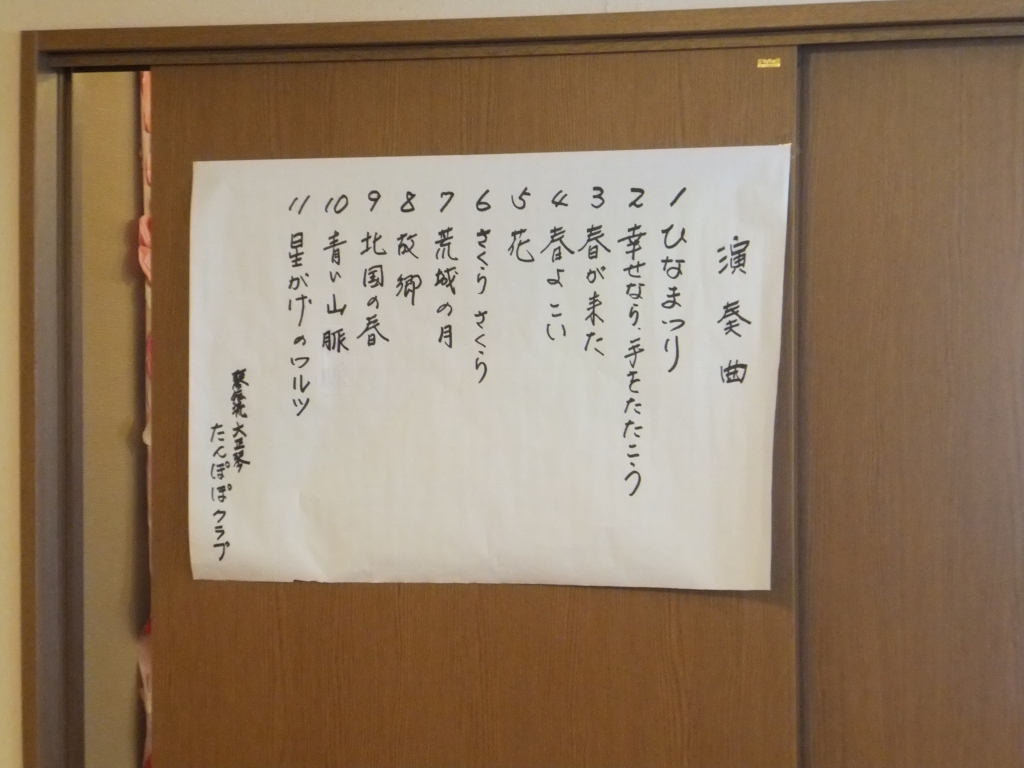 演奏曲
1 ひなまつり
2 幸せなら、手をたたこう
3 春が来た
4 春よこい
5 花
6 さくら さくら
7 荒城の月
8 故郷
9 北国の春
10 青い山脈
11 星がげのワルツ
琴伝流 大正琴
たんぽぽクラブ